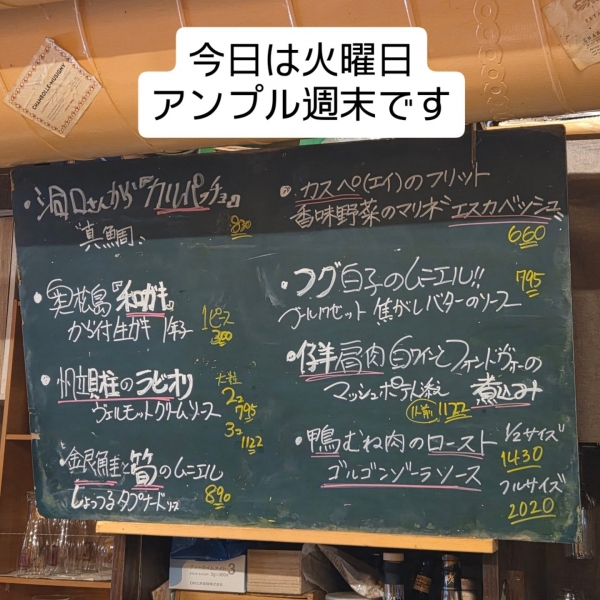 今日は火曜日
アンプル週末です
CHAMBOLLE-MUSIGNY
・洞口さんが『カルパッチョ』
真鯛 830
・奥松島『和ガキ』
から付生ガキ 1年子 1ピス 300
・帆立貝柱のラビオリ 大粒
ヴェルモットクリームソース 2コ 795
3コ 1122
・銀鮭と筍のムニエル
しょっつるタプナードソース 890
・カスペ(エイ)のフリット
香味野菜のマリネ エスカベッシュ
660
・フグ白子のムニエル!! 795
焦がしバターのソース
・仔羊肩肉白ワインとフォンドヴォーの
マッシュポテト添え 煮込み
1人前 1122
・鴨むね肉のロースト 1/2サイズ
1430
ゴルゴンゾーラソース フルサイズ
2020